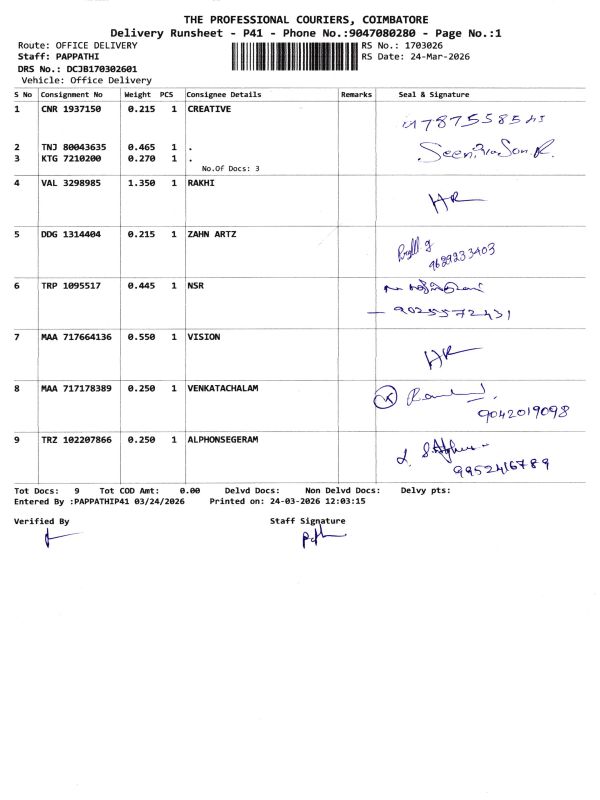 THE PROFESSIONAL COURIERS, COIMBATORE
Delivery Runsheet - P41 - Phone No.:9047080280 - Page No.:1
Route: OFFICE DELIVERY RS No.: 1703026
Staff: PAPPATHI RS Date: 24-Mar-2026
DRS No.: DCJB170302601
Vehicle: Office Delivery
S No Consignment No Weight PCS Consignee Details Remarks Seal & Signature
1 CNR 1937150 0.215 1 CREATIVE
2 TNJ 80043635 0.465 1 .
3 KTG 7210200 0.270 1 .
No.Of Docs: 3
4 VAL 3298985 1.350 1 RAKHI HR
5 DDG 1314404 0.215 1 ZAHN ARTZ
9629233403
6 TRP 1095517 0.445 1 NSR
9025572431
7 MAA 717664136 0.550 1 VISION HR
8 MAA 717178389 0.250 1 VENKATACHALAM
9042019098
9 TRZ 102207866 0.250 1 ALPHONSEGERAM
9952416789
Tot Docs: 9 Tot COD Amt: 0.00 Delvd Docs: Non Delvd Docs: Delvy pts:
Entered By :PAPPATHIP41 03/24/2026 Printed on: 24-03-2026 12:03:15
Verified By Staff Signature